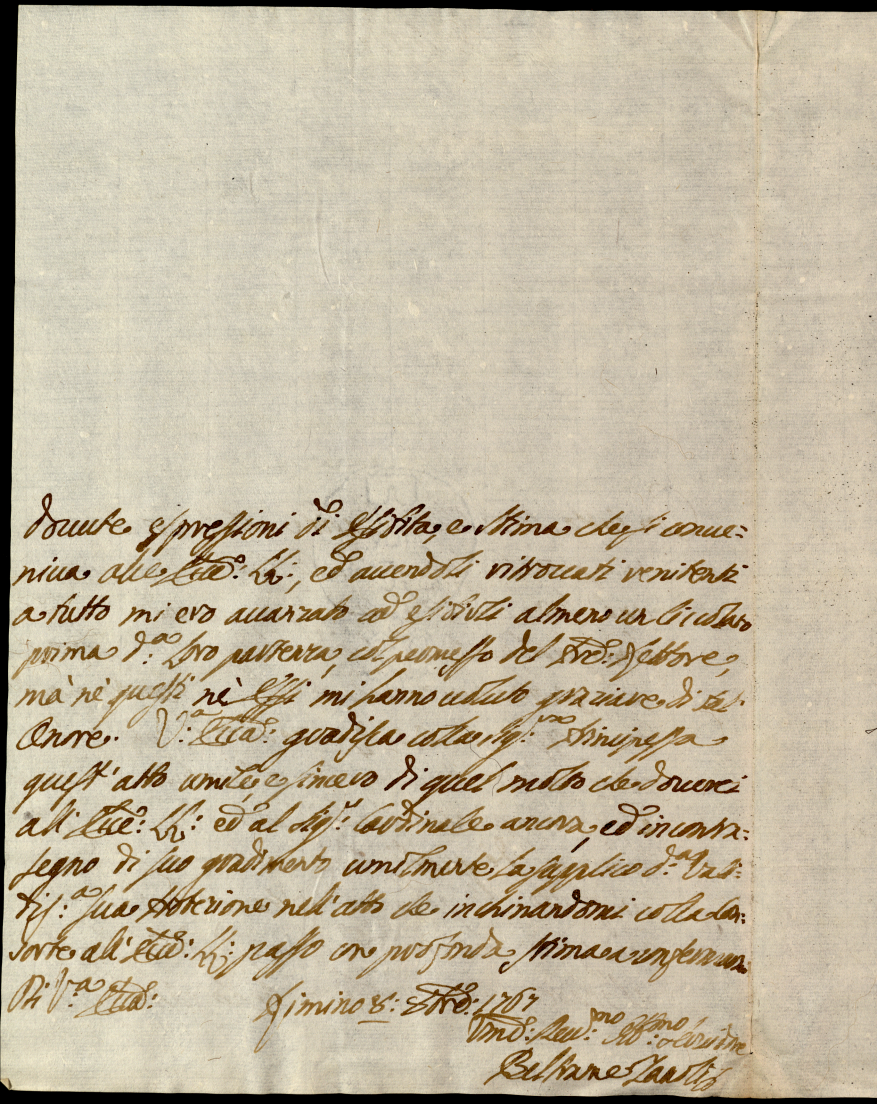 dovute espressioni di Essibita, e stima che si conve=
niva alle Ecc:e LL:, ed avendoli ritrovati renitenti
a tutto mi ero avanzato ad esibirli almeno un Ciccolato
prima d:a loro partenza, col permesso del Rettore,
mà nè questi nè Essi mi hanno voluto graziare di tal
Onore. V:a Ecca: gradisca colla Sig:ra Principessa
quest'atto umile, e sincero di quel molto che doverei
all'Ecce: LL: ed al Sig:r Cardinale ancora, ed in contra=
segno di suo gradimento umilmente La supplico d:a Vali=
dis:a sua Protezione nell'atto che inchinandomi colla Con=
sorte all'Ecce: LL: passo con profonda stima a confermarmi
Di V:a Ecca:
Rimino 8: 1767
Umo: Dev:mo Obb:mo Servidore
Beltrame Zanolij